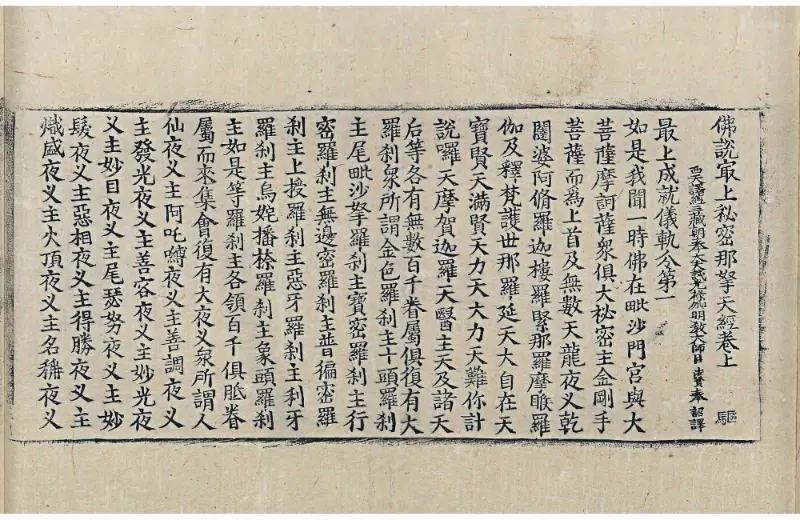 佛說最上秘密那拏天經卷上 驅
西天譯經三藏朝奉大夫試光祿卿明教大師臣法賢奉 詔譯
最上成就儀軌分第一
如是我聞一時佛在毗沙門宮與大
菩薩摩訶薩衆俱大秘密主金剛手
菩薩而為上首及無數天龍夜叉乾
闥婆阿脩羅迦樓羅緊那羅摩睺羅
伽及釋梵護世那羅延天大自在天
寶賢天滿賢天力天大力天難你計
說囉天摩賀迦羅天醫主天及諸天
后等各有無數百千眷屬俱復有大
羅刹衆所謂金色羅刹主十頭羅刹
主尾毗沙拏羅刹主寶密羅刹主行
密羅刹主無邊密羅刹主普徧密羅
刹主上授羅刹主惡牙羅刹主利牙
羅刹主烏姹播捺羅刹主象頭羅刹
主如是等羅刹主各領百千俱胝眷
屬而來集會復有大夜叉衆所謂人
仙夜叉主阿吒嚩夜叉主善調夜叉
主發光夜叉主善容夜叉主妙光夜
叉主妙目夜叉主尾瑟努夜叉主妙
髮夜叉主惡相夜叉主得勝夜叉主
熾盛夜叉主火頂夜叉主名稱夜叉